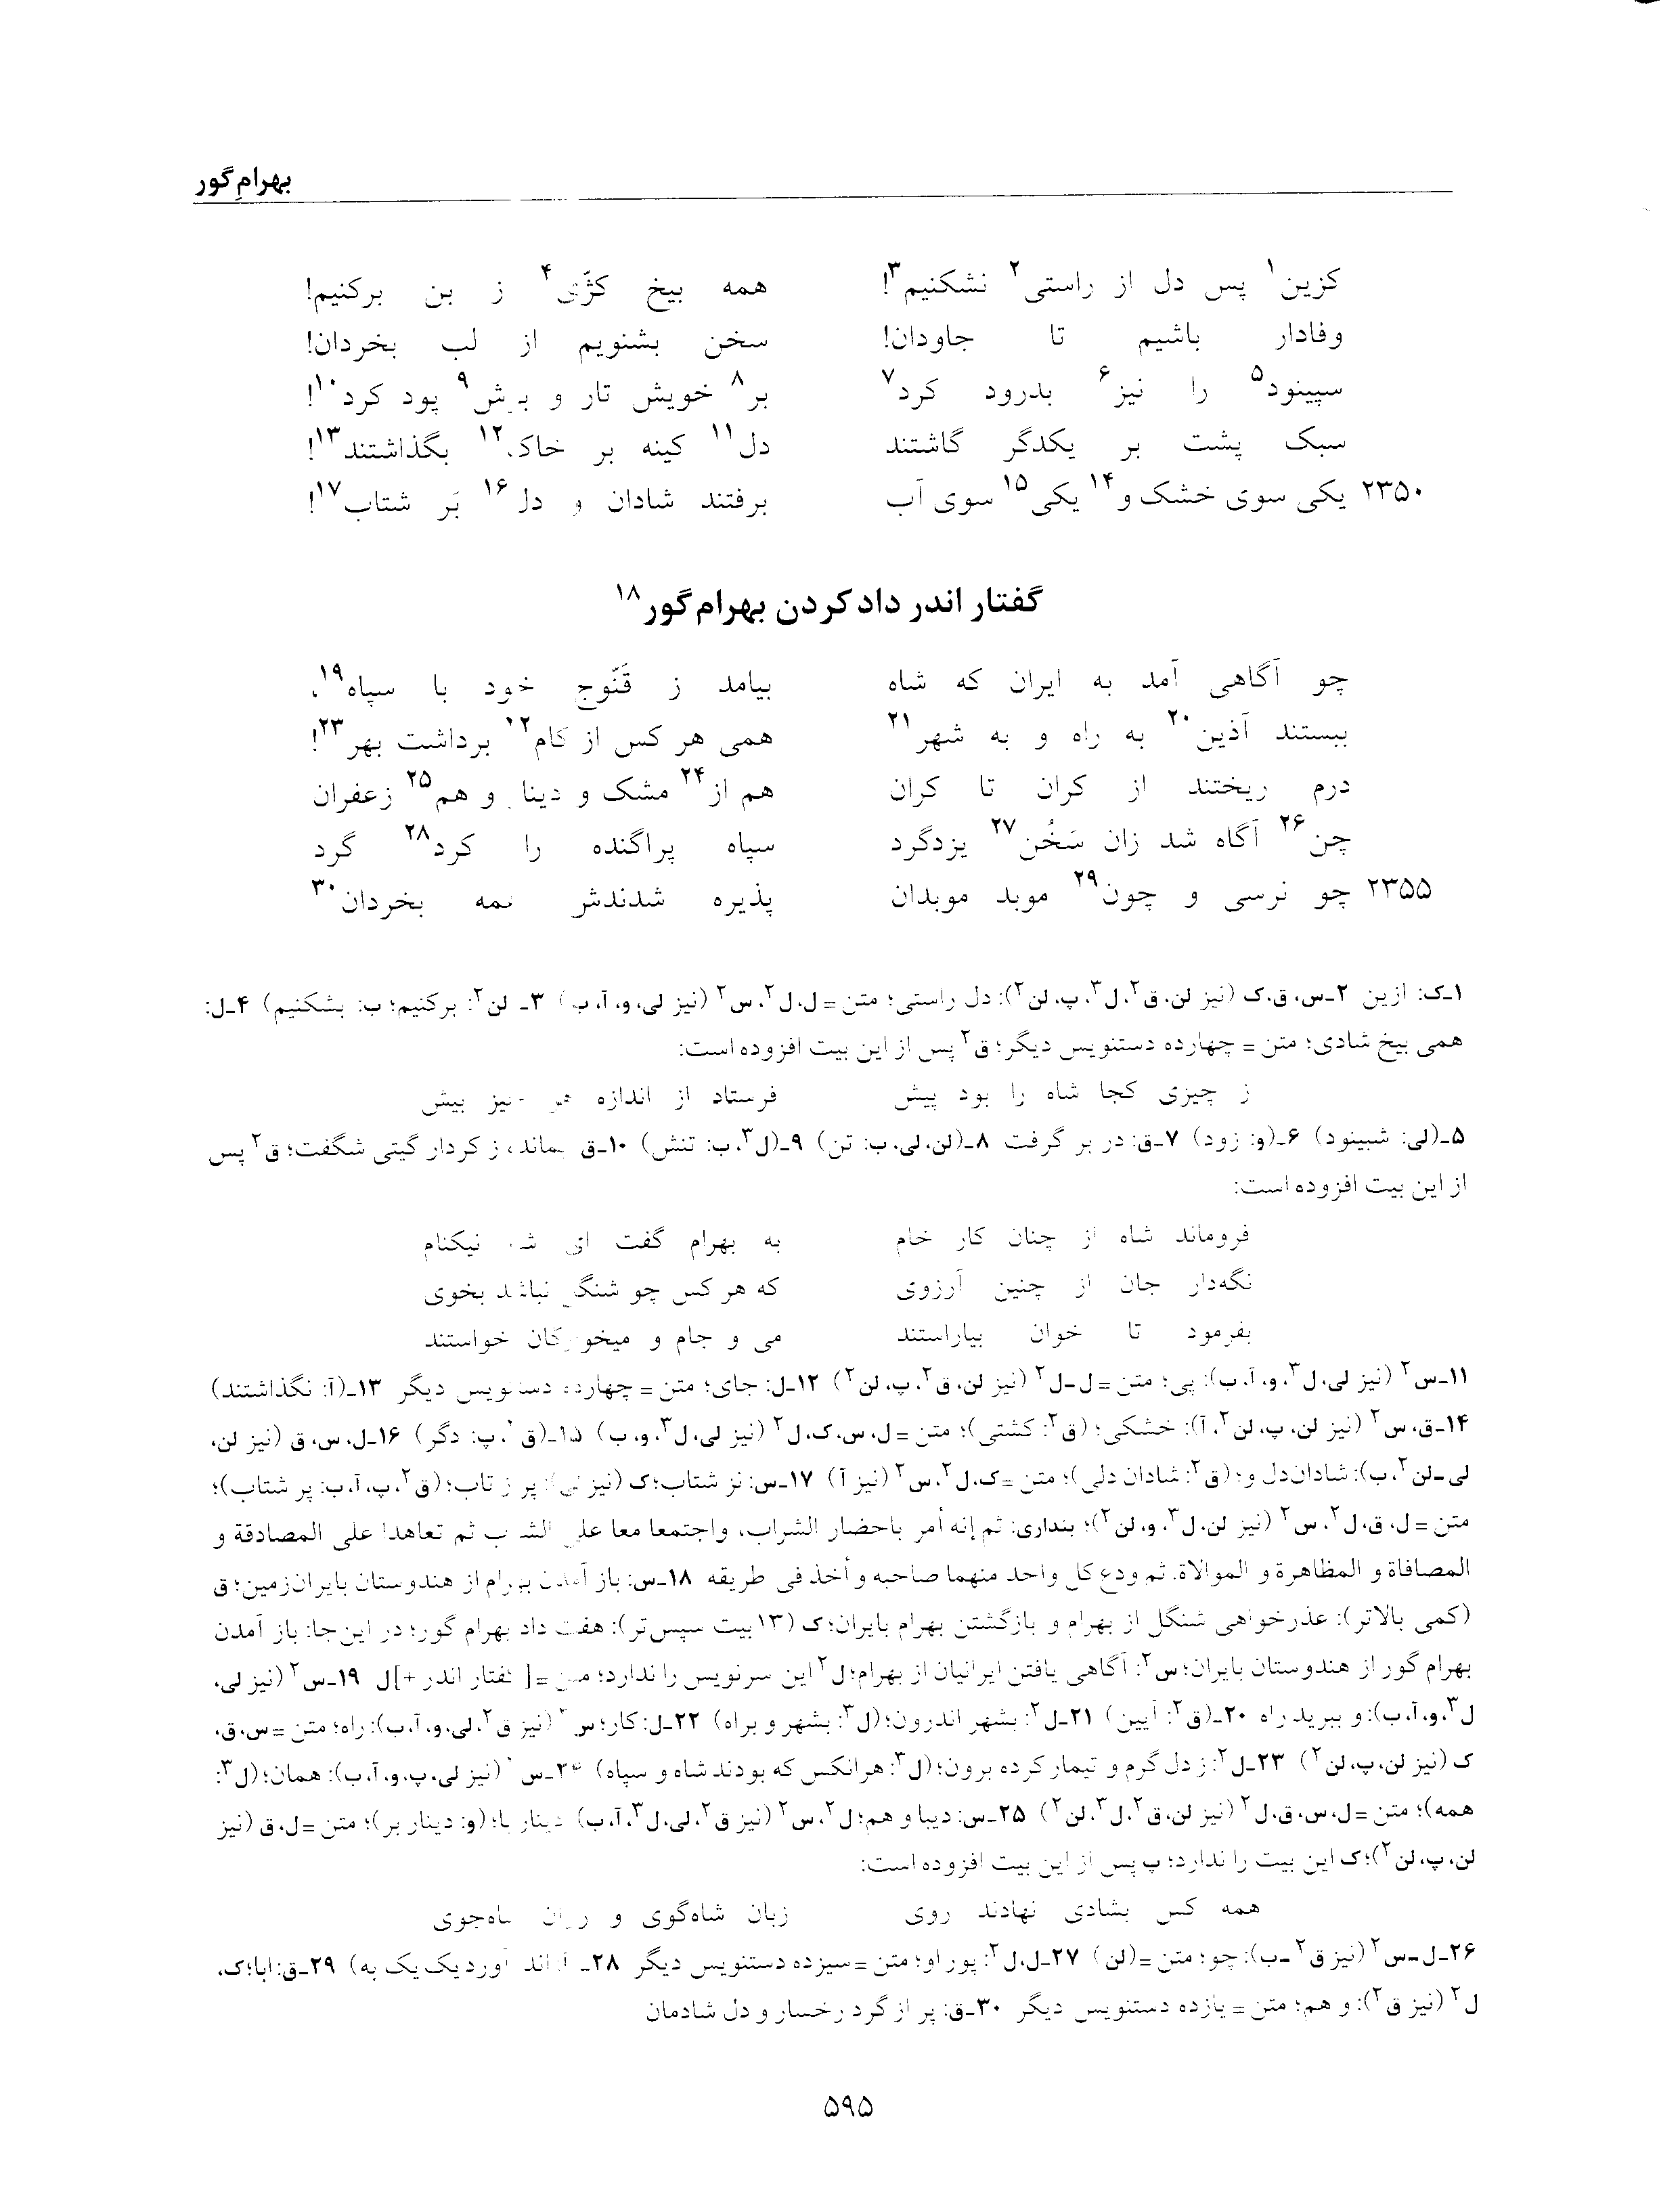 بهرامِ گور
کزین۱ پس دل از راستی۲ نشکنیم۳! همه بیخ کژّی۴ ز بن برکنیم!
وفادار باشیم تا جاودان! سخن بشنویم از لب بخردان!
سپینود۵ را نیز۶ بدرود کرد۷ بر۸ خویش تار و برش۹ پود کرد۱۰!
سبک پشت بر یکدگر گاشتند دل۱۱ کینه بر خاک۱۲ بگذاشتند۱۳!
۲۳۵۰ یکی سوی خشک و۱۴ یکی۱۵ سوی آب برفتند شادان و دل۱۶ پَر شتاب۱۷!
گفتار اندر داد کردن بهرام گور۱۸
چو آگاهی آمد به ایران که شاه بیامد ز قَنّوج خود با سپاه۱۹،
ببستند آذین۲۰ به راه و به شهر۲۱ همی هر کس از کام۲۲ برداشت بهر۲۳!
درم ریختند از کران تا کران هم از۲۴ مشک و دینار و هم۲۵ زعفران
چن۲۶ آگاه شد زان سَخُن۲۷ یزدگرد سپاه پراگنده را کرد۲۸ گرد
۲۳۵۵ چو نرسی و چون۲۹ موبد موبدان پذیره شدندش همه بخردان۳۰
۱ـ ک: ازین ۲ـ س، ق، ک (نیز لن، ق۲، ل۳، پ، لن۲): دل راستی؛ متن = ل، ل۲، س۲ (نیز لی، و، آ، ب) ۳ـ لن۲: برکنیم؛ ب: بشکنیم) ۴ـ ل:
همی بیخ شادی؛ متن = چهارده دستنویس دیگر؛ ق۲ پس از این بیت افزوده است:
ز چیزی کجا شاه را بود پیش فرستاد از اندازه هر چیز بیش
۵ـ (لی: شبینود) ۶ـ (و: زود) ۷ـ ق: در بر گرفت ۸ـ (لن، لی، ب: تن) ۹ـ (ل۳، ب: تنش) ۱۰ـ ق بماند ز کردار گیتی شگفت؛ ق۲ پس
از این بیت افزوده است:
فروماند شاه از چنان کار خام به بهرام گفت ای شه نیکنام
نگه‌دار جان از چنین آرزوی که هر کس چو شنگل نباشد بخوی
بفرمود تا خوان بیاراستند می و جام و میخوارگان خواستند
۱۱ـ س۲ (نیز لی، ل۳، و، آ، ب): پی؛ متن = ل ـ ل۲ (نیز لن، ق۲، پ، لن۲) ۱۲ـ ل: جای؛ متن = چهارده دستنویس دیگر ۱۳ـ (آ: نگذاشتند)
۱۴ـ ق، س۲ (نیز لن، پ، لن۲، آ): خشکی؛ (ق۲: کشتی)؛ متن = ل، س، ک، ل۲ (نیز لی، ل۳، و، ب) ۱۵ـ (ق۲، پ: دگر) ۱۶ـ ل، س، ق (نیز لن،
لی ـ لن۲، ب): شادان‌دل و؛ (ق۲: شادان دلی)؛ متن = ک، ل۲، س۲ (نیز آ) ۱۷ـ س: نز شتاب؛ ک (نیز لی): پر ز تاب؛ (ق۲، پ، آ، ب: پر شتاب)؛
متن = ل، ق، ل۲، س۲ (نیز لن، ل۳، و، لن۲)؛ بنداری: ثم إنه أمر باحضار الشراب، واجتمعا معا علی الشرب ثم تعاهدا علی المصادقة و
المصافاة و المظاهرة و الموالاة. ثم ودع کل واحد منهما صاحبه و أخذ فی طریقه ۱۸ـ س: باز آمدن بهرام از هندوستان بایران‌زمین؛ ق
(کمی بالاتر): عذرخواهی شنگل از بهرام و بازگشتن بهرام بایران؛ ک (۱۳ بیت سپس‌تر): هفت داد بهرام گور؛ در این‌جا: باز آمدن
بهرام گور از هندوستان بایران؛ س۲: آگاهی یافتن ایرانیان از بهرام؛ ل۲ این سرنویس را ندارد؛ متن = [گفتار اندر +] ل ۱۹ـ س۲ (نیز لی،
ل۳، و، آ، ب): و ببرید راه ۲۰ـ (ق۲: آیین) ۲۱ـ ل۲: بشهر اندرون؛ (ل۳: بشهر و براه) ۲۲ـ ل: کار؛ س۲ (نیز ق۲، لی، و، آ، ب): راه؛ متن = س، ق،
ک (نیز لن، پ، لن۲) ۲۳ـ ل۲: ز دل گرم و تیمار کرده برون؛ (ل۳: هرانکس که بودند شاه و سپاه) ۲۴ـ س۲ (نیز لی، پ، و، آ، ب): همان؛ (ل۳:
همه)؛ متن = ل، س، ق، ل۲ (نیز لن، ق۲، ل۳، لن۲) ۲۵ـ س: دیبا و هم؛ ل۲، س۲ (نیز ق۲، لی، ل۳، آ، ب) دینار با؛ (و: دینار بر)؛ متن = ل، ق (نیز
لن، پ، لن۲)؛ ک این بیت را ندارد؛ پ پس از این بیت افزوده است:
همه کس بشادی نهادند روی زبان شاه‌گوی و روان شاه‌جوی
۲۶ـ ل ـ س۲ (نیز ق۲ ـ ب): چو؛ متن = (لن) ۲۷ـ ل، ل۲: پور او؛ متن = سیزده دستنویس دیگر ۲۸ـ آورد یک یک به) ۲۹ـ ق: ابا؛ ک،
ل۲ (نیز ق۲): و هم؛ متن = یازده دستنویس دیگر ۳۰ـ ق: پر از گرد رخسار و دل شادمان
۵۹۵